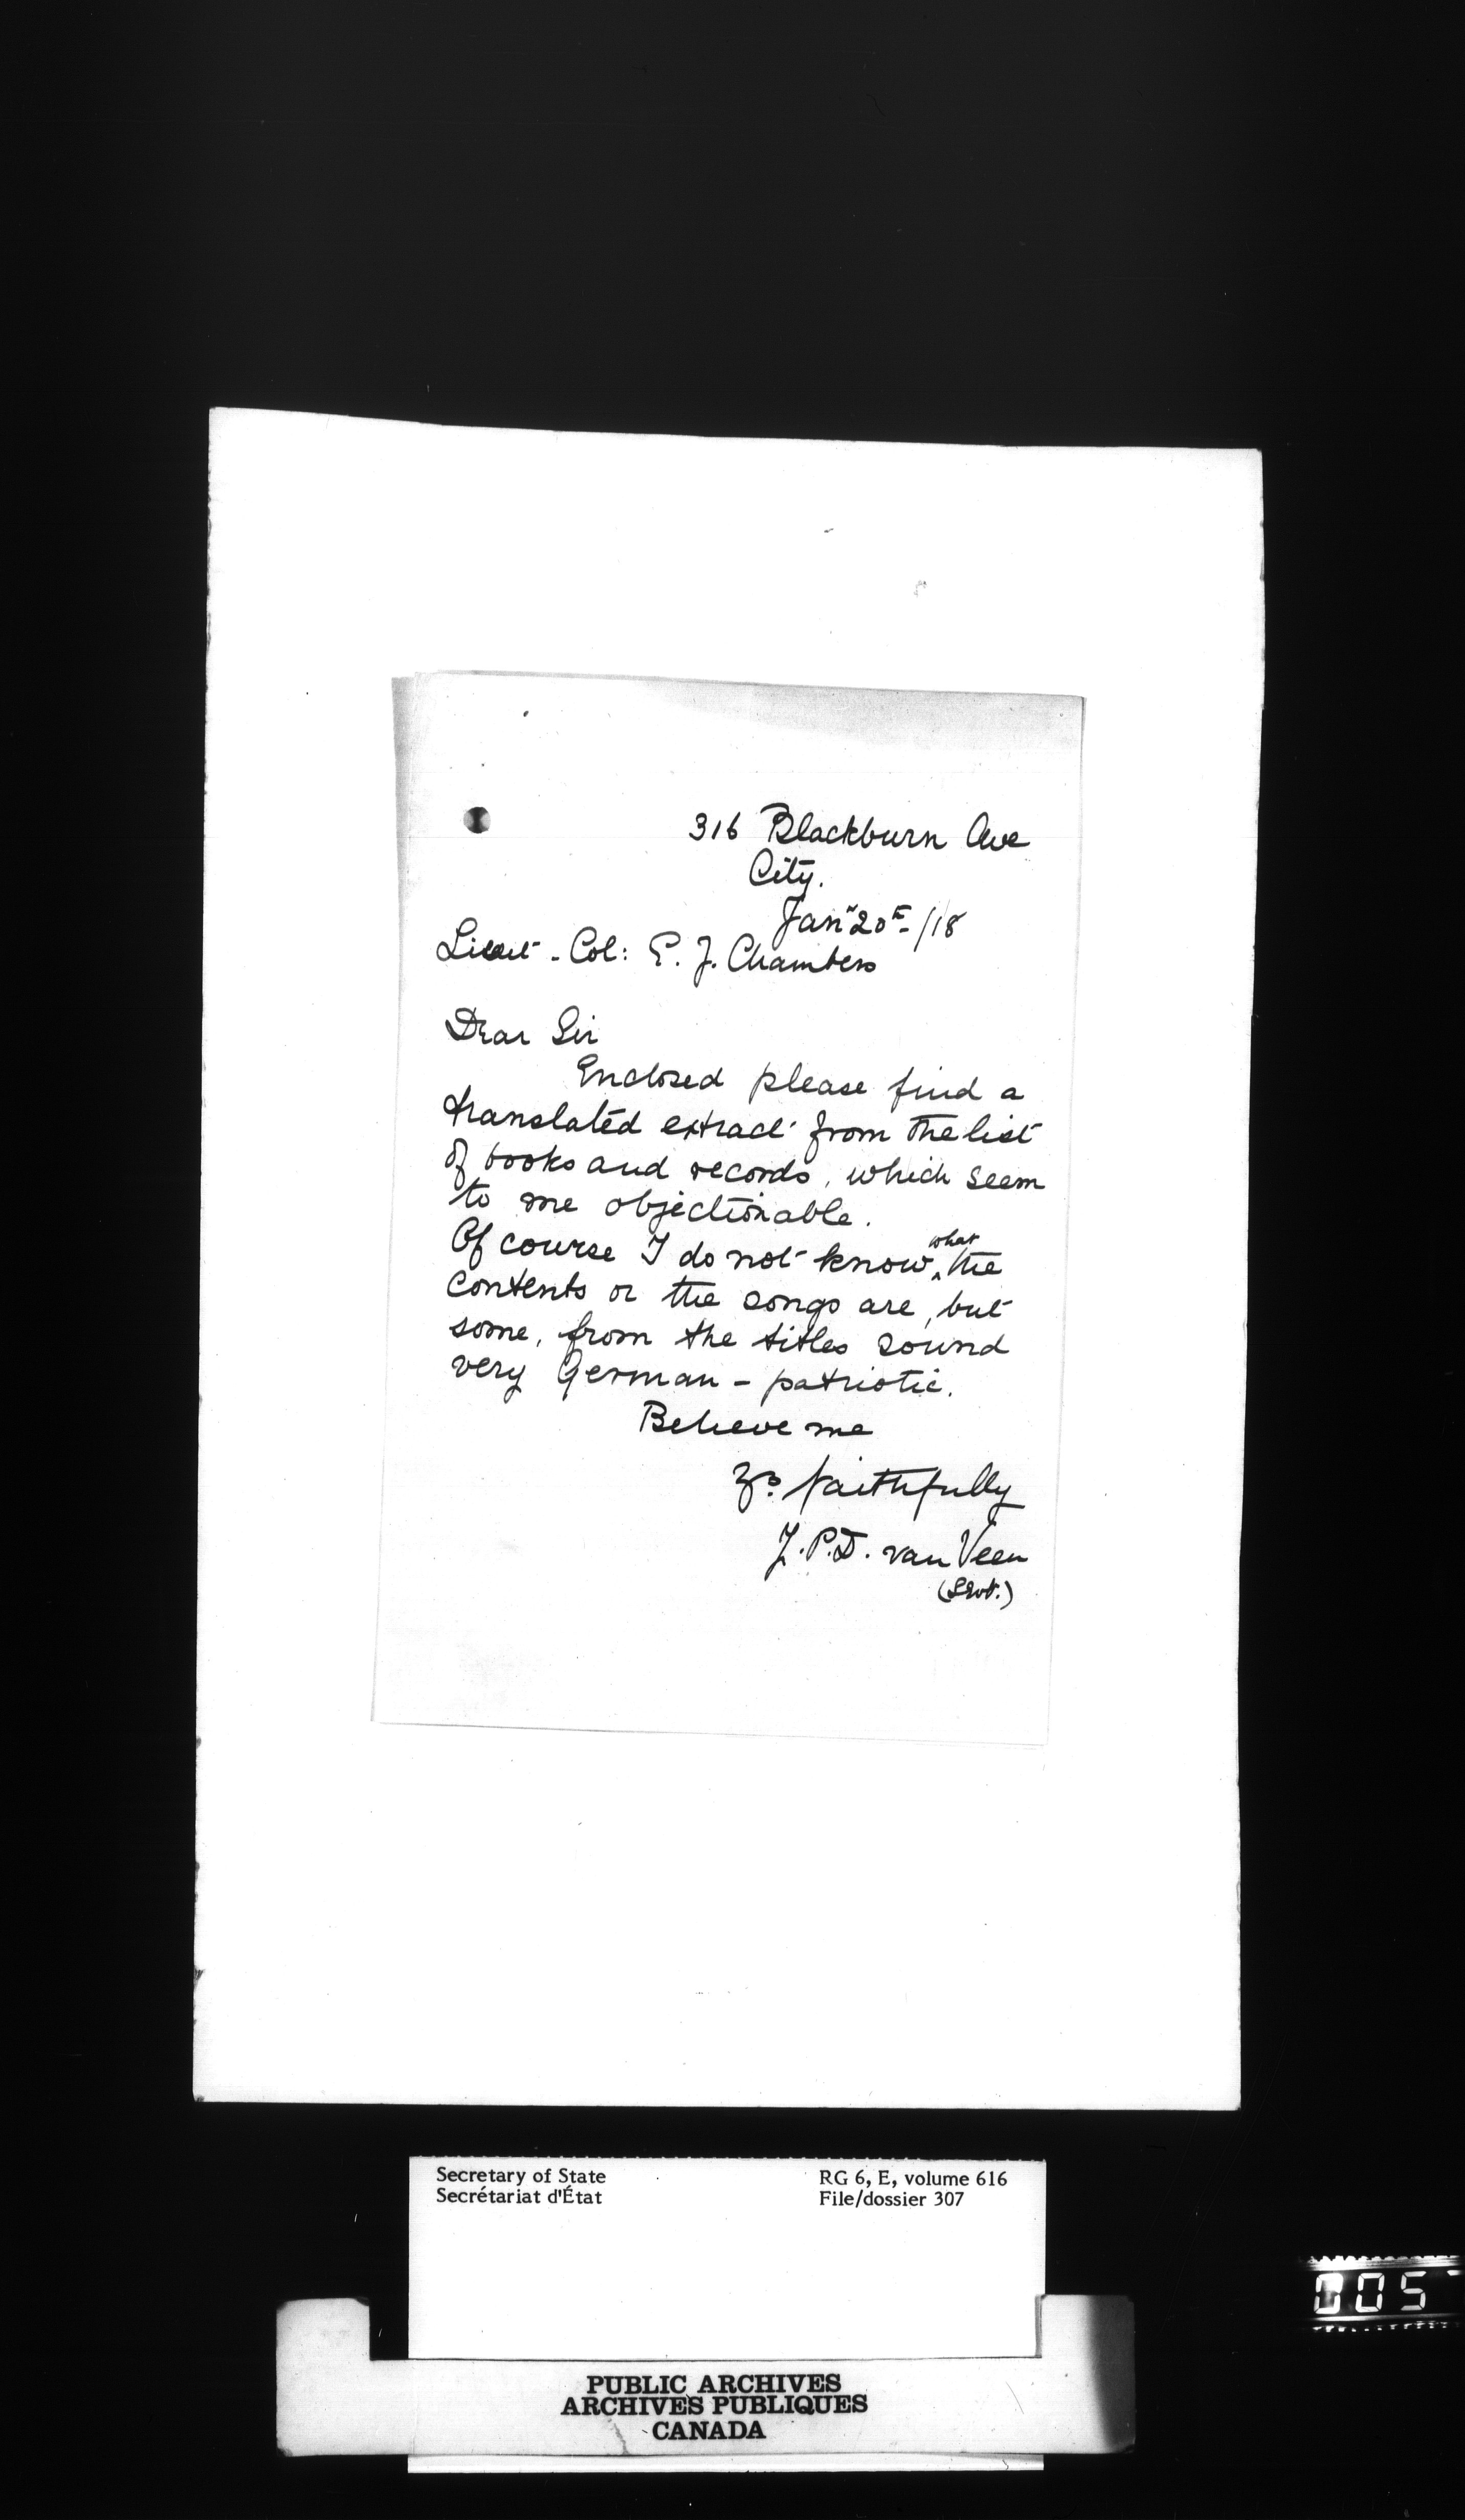 316 Blackburn Ave
City.
Jany 20th /18
Lieut - Col: E. J. Chambers
Dear Sir
Enclosed please find a
translated extract from the list
of books and records, which seem
to me objectionable.
Of course I do not know what the
contents or the songs are, but
some, from the titles sound
very German - patriotic.
Believe me
Yrs faithfully
J. P. D. van Veen
Secretary of State
Secrétariat d'État
RG 6, E, volume 616
File/dossier 307
005
PUBLIC ARCHIVES
ARCHIVES PUBLIQUES
CANADA